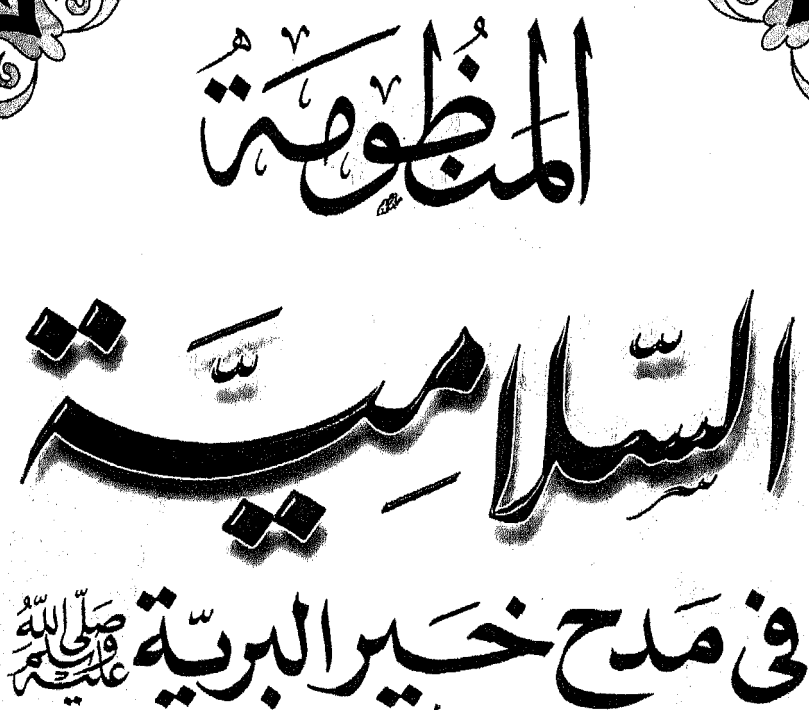 المَنظُومَةُ
السَّلامِيَّة
في مَدح خَير البريّة صَلَّى اللهُ عَلَيْهِ وَسَلَّم